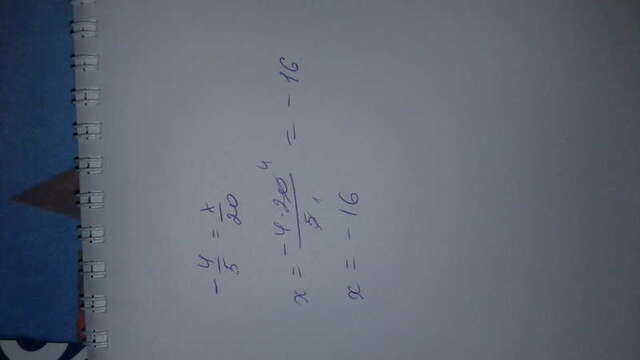 - 4/5 = x/20
x = -4·20⁴/5₁ = -16
x = -16